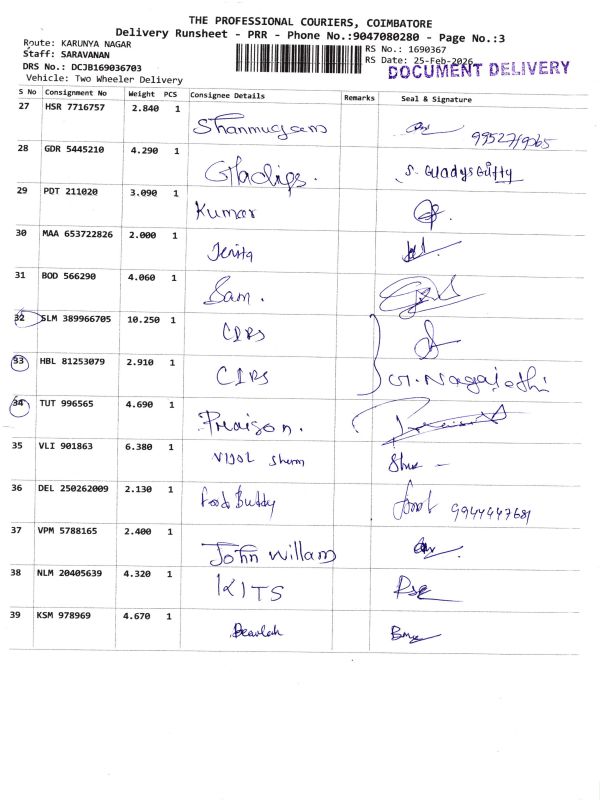 THE PROFESSIONAL COURIERS, COIMBATORE
Delivery Runsheet - PRR - Phone No.:9047080280 - Page No.:3
Route: KARUNYA NAGAR
Staff: SARAVANAN
DRS No.: DCJB169036703
Vehicle: Two Wheeler Delivery
RS No.: 1690367
RS Date: 25-Feb-2026
DOCUMENT DELIVERY
S No Consignment No Weight PCS Consignee Details Remarks Seal & Signature
27 HSR 7716757 2.840 1 Shanmugam
28 GDR 5445210 4.290 1 Gladigs. S. Gladys Gifty
29 PDT 211020 3.090 1 Kumar
30 MAA 653722826 2.000 1 Jenita
31 BOD 566290 4.060 1 Sam.
32 SLM 389966705 10.250 1 CIRS
33 HBL 81253079 2.910 1 CIRS G. Nagajothi
34 TUT 996565 4.690 1 Preaison.
35 VLI 901863 6.380 1
36 DEL 250262009 2.130 1 Food Buddy 9944447681
37 VPM 5788165 2.400 1 John Willam
38 NLM 20405639 4.320 1 KITS
39 KSM 978969 4.670 1 Beaulah